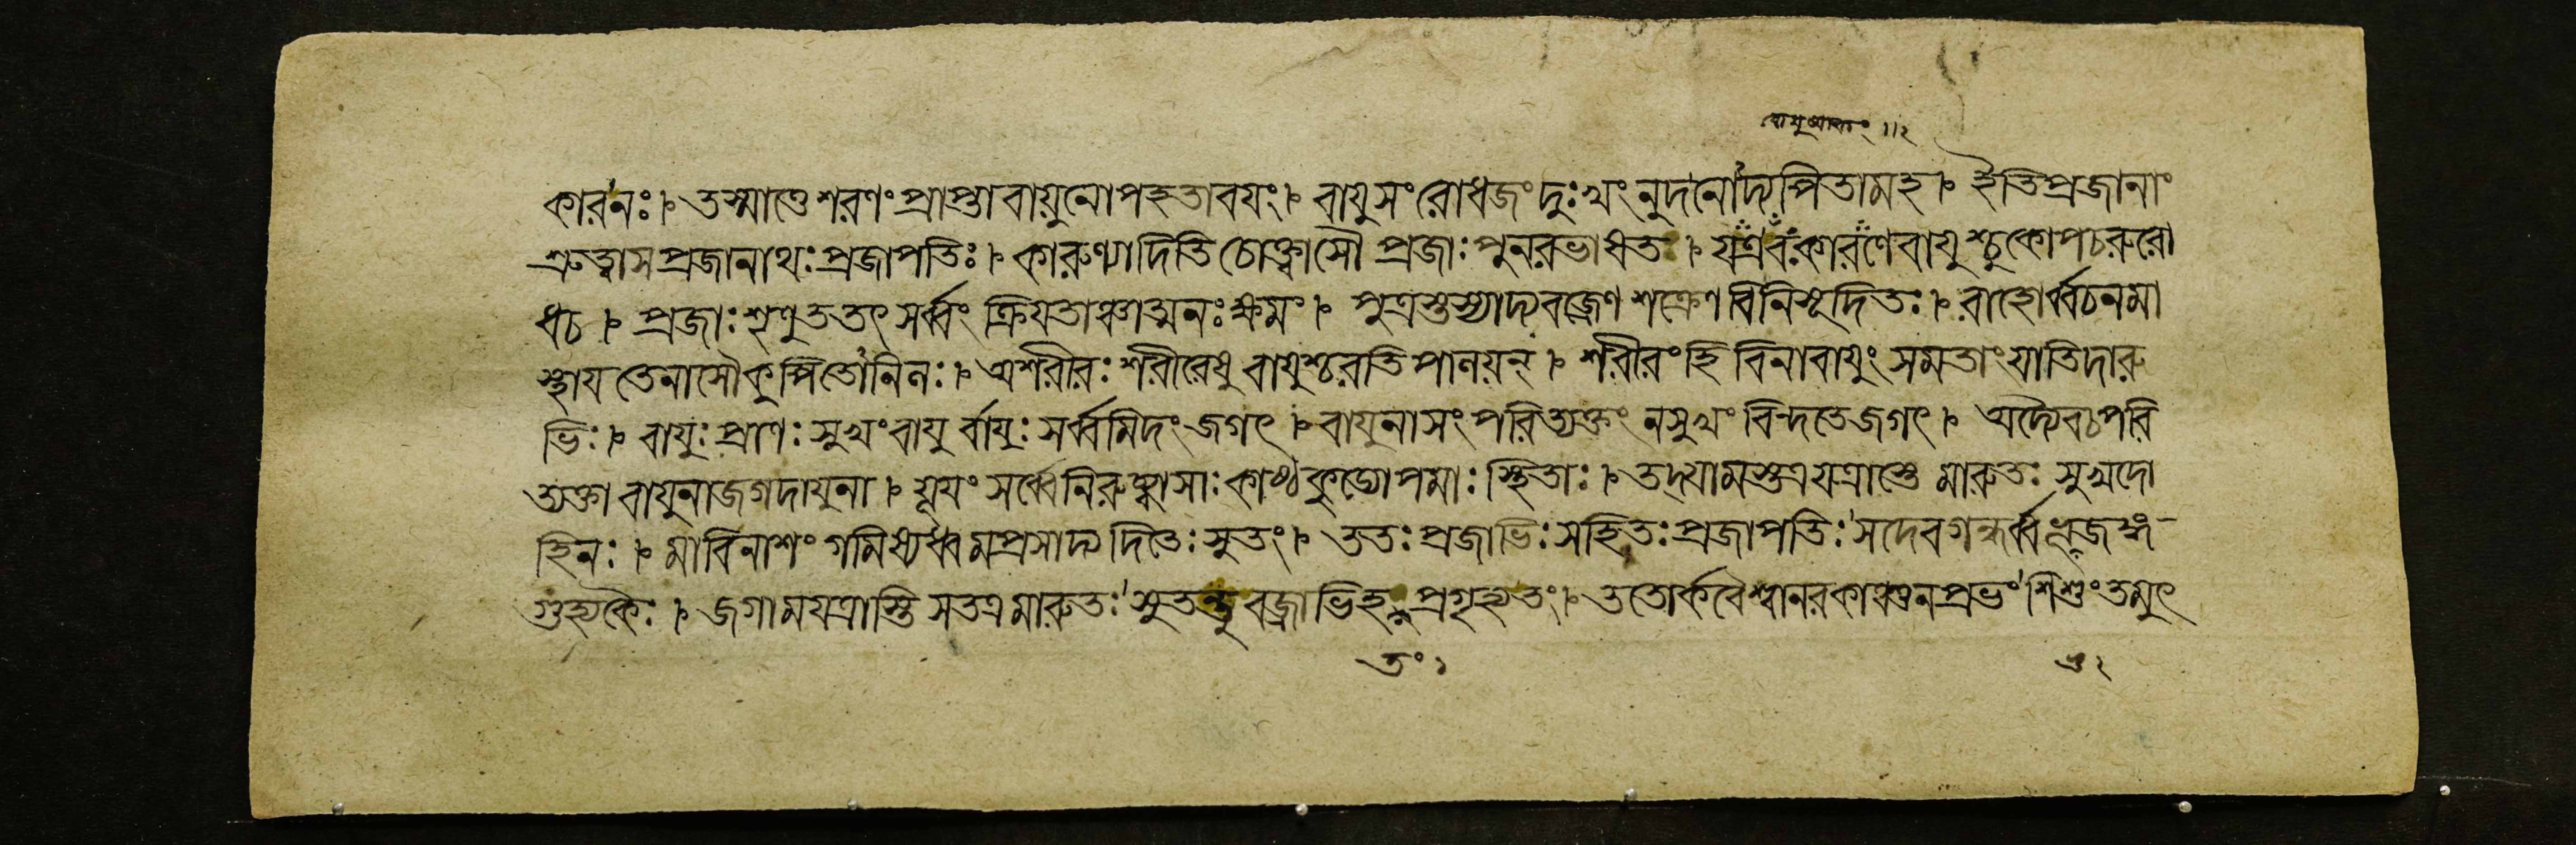 কারনঃ । তস্মাত্তে শরণং প্রাপ্তা বায়ুনোপহতা বয়ং । বায়ুসংরোধজং দুঃখং নুদনোদ্যপিতামহ । ইতি প্রজানাং
শ্রুত্বাস প্রজানাথঃ প্রজাপতিঃ । কারণাদিতি চোক্ত্বাসৌ প্রজাঃ পুনরভাষত । কারণে বায়ুশ্চুকোপচরুরো
ধচ । প্রজাঃ শৃণুত তৎ সর্ব্বং ক্ষমং । পুত্রস্তস্যাদ্য বজ্রেণ শক্রেণ বিনিসূদিতঃ । রাহোর্ব্বচনমা
স্থায় তেনাসৌ কুপিতোনিলঃ । অশরীরঃ শরীরেষু বায়ুশ্চরতি পালয়ন্ । শরীরং হি বিনা বায়ুং সমতাং যাতি দারু
ভিঃ । বায়ুঃ প্রাণঃ সুখং বায়ুর্বায়ুঃ সর্ব্বমিদং জগৎ । বায়ুনা সংপরিত্যক্তং ন সুখং বিন্দতে জগৎ । অদ্যৈবচ পরি
ত্যক্তা বায়ুনা জগদায়ুনা । যূয়ং সর্ব্বে নিরুচ্ছ্বাসাঃ কাষ্ঠকুড্যোপমাঃ স্থিতাঃ । তদ্যামস্তত্র যত্রাস্তে মারুতঃ সুখদো
হিনঃ । মা বিনাশং গমিষ্যধ্বমপ্রসাদ্য দিতেঃ সুতং । ততঃ প্রজাভিঃ সহিতঃ প্রজাপতিঃ সদেবগন্ধর্ব্ব
গুহ্যকৈঃ । জগাম যত্রাস্তি স তত্র মারুতঃ সুতন্তু বজ্রাভিহ প্রগৃহ্যতং । ততোর্কবৈশ্বানরকাঞ্চনপ্রভং শিশুং তমুৎ
তং ১